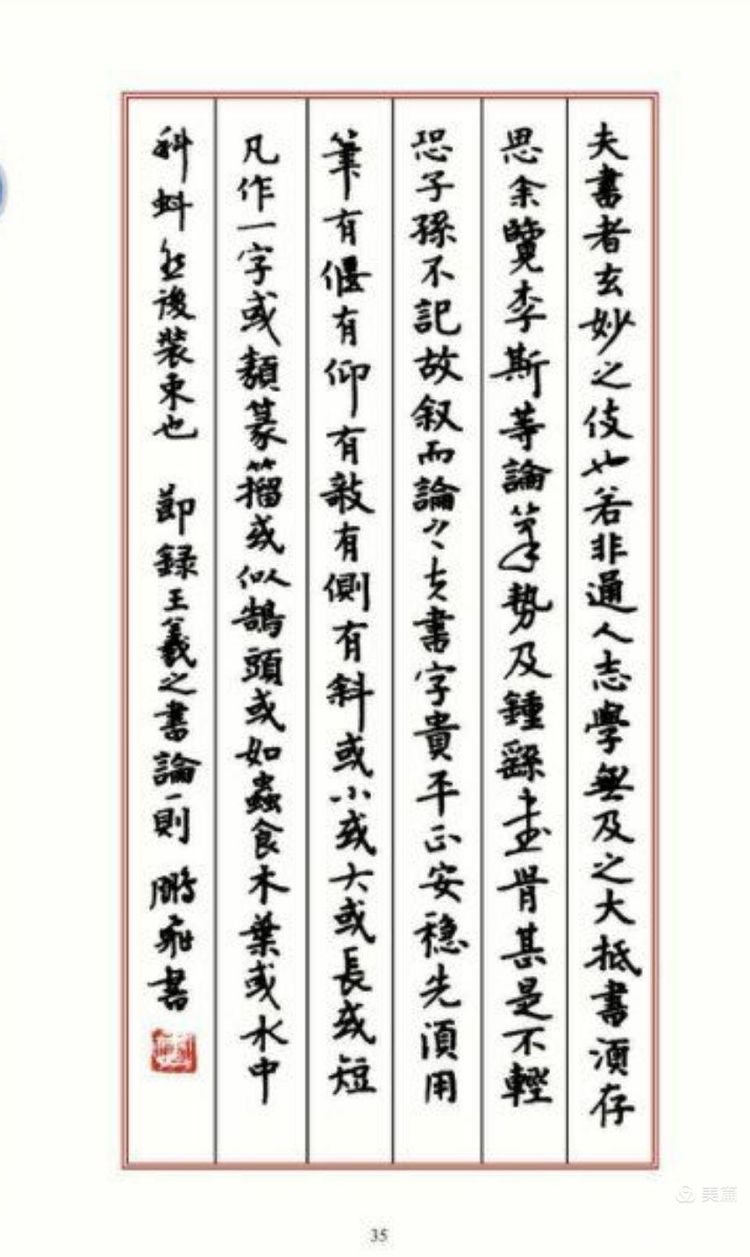 夫書者玄妙之伎也若非通人志學無及之大抵書須存
思余覽李斯等論筆勢及鍾繇書骨甚是不輕
恐子孫不記故叙而論之夫書字貴平正安穩先須用
筆有偃有仰有敧有側有斜或小或大或長或短
凡作一字或類篆籀或似鵠頭或如蟲食木葉或水中
科蚪然後裝束也 節録王羲之書論一則 鵬
書
35
美篇